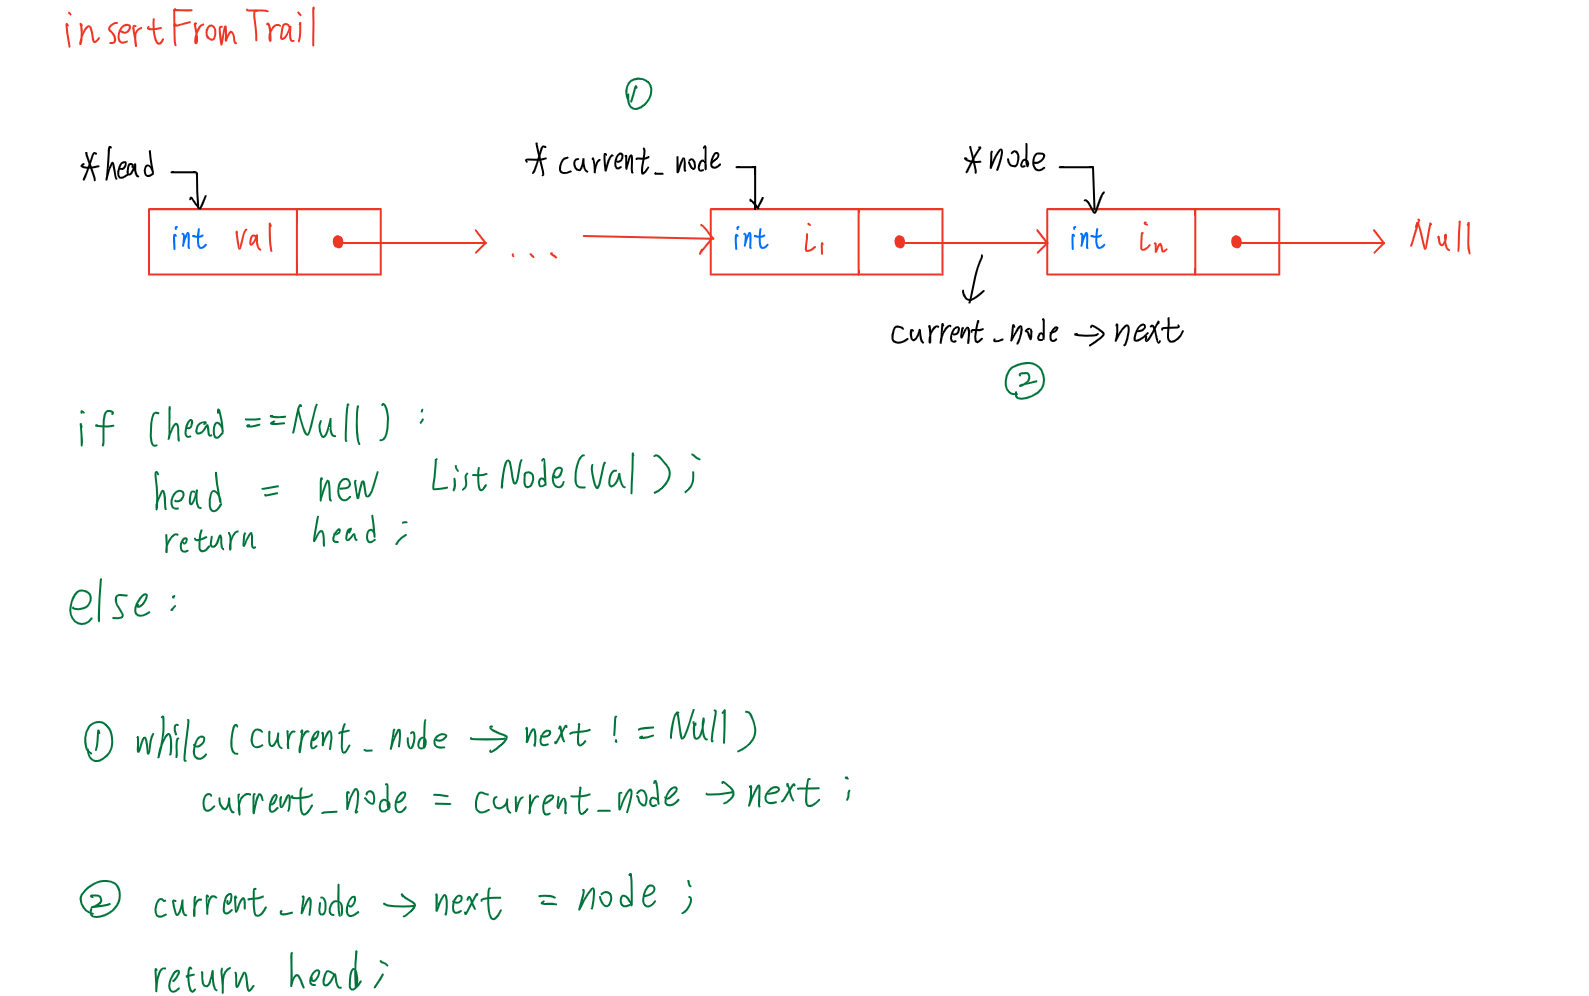 insertFromTrail
①
*head
*current_node
*node
int val
...
int i₁
int iₙ
Null
current_node → next
②
if (head ==Null) :
head = new ListNode(val);
return head;
else:
① while (current_node → next != Null)
current_node = current_node → next ;
② current_node → next = node ;
return head;